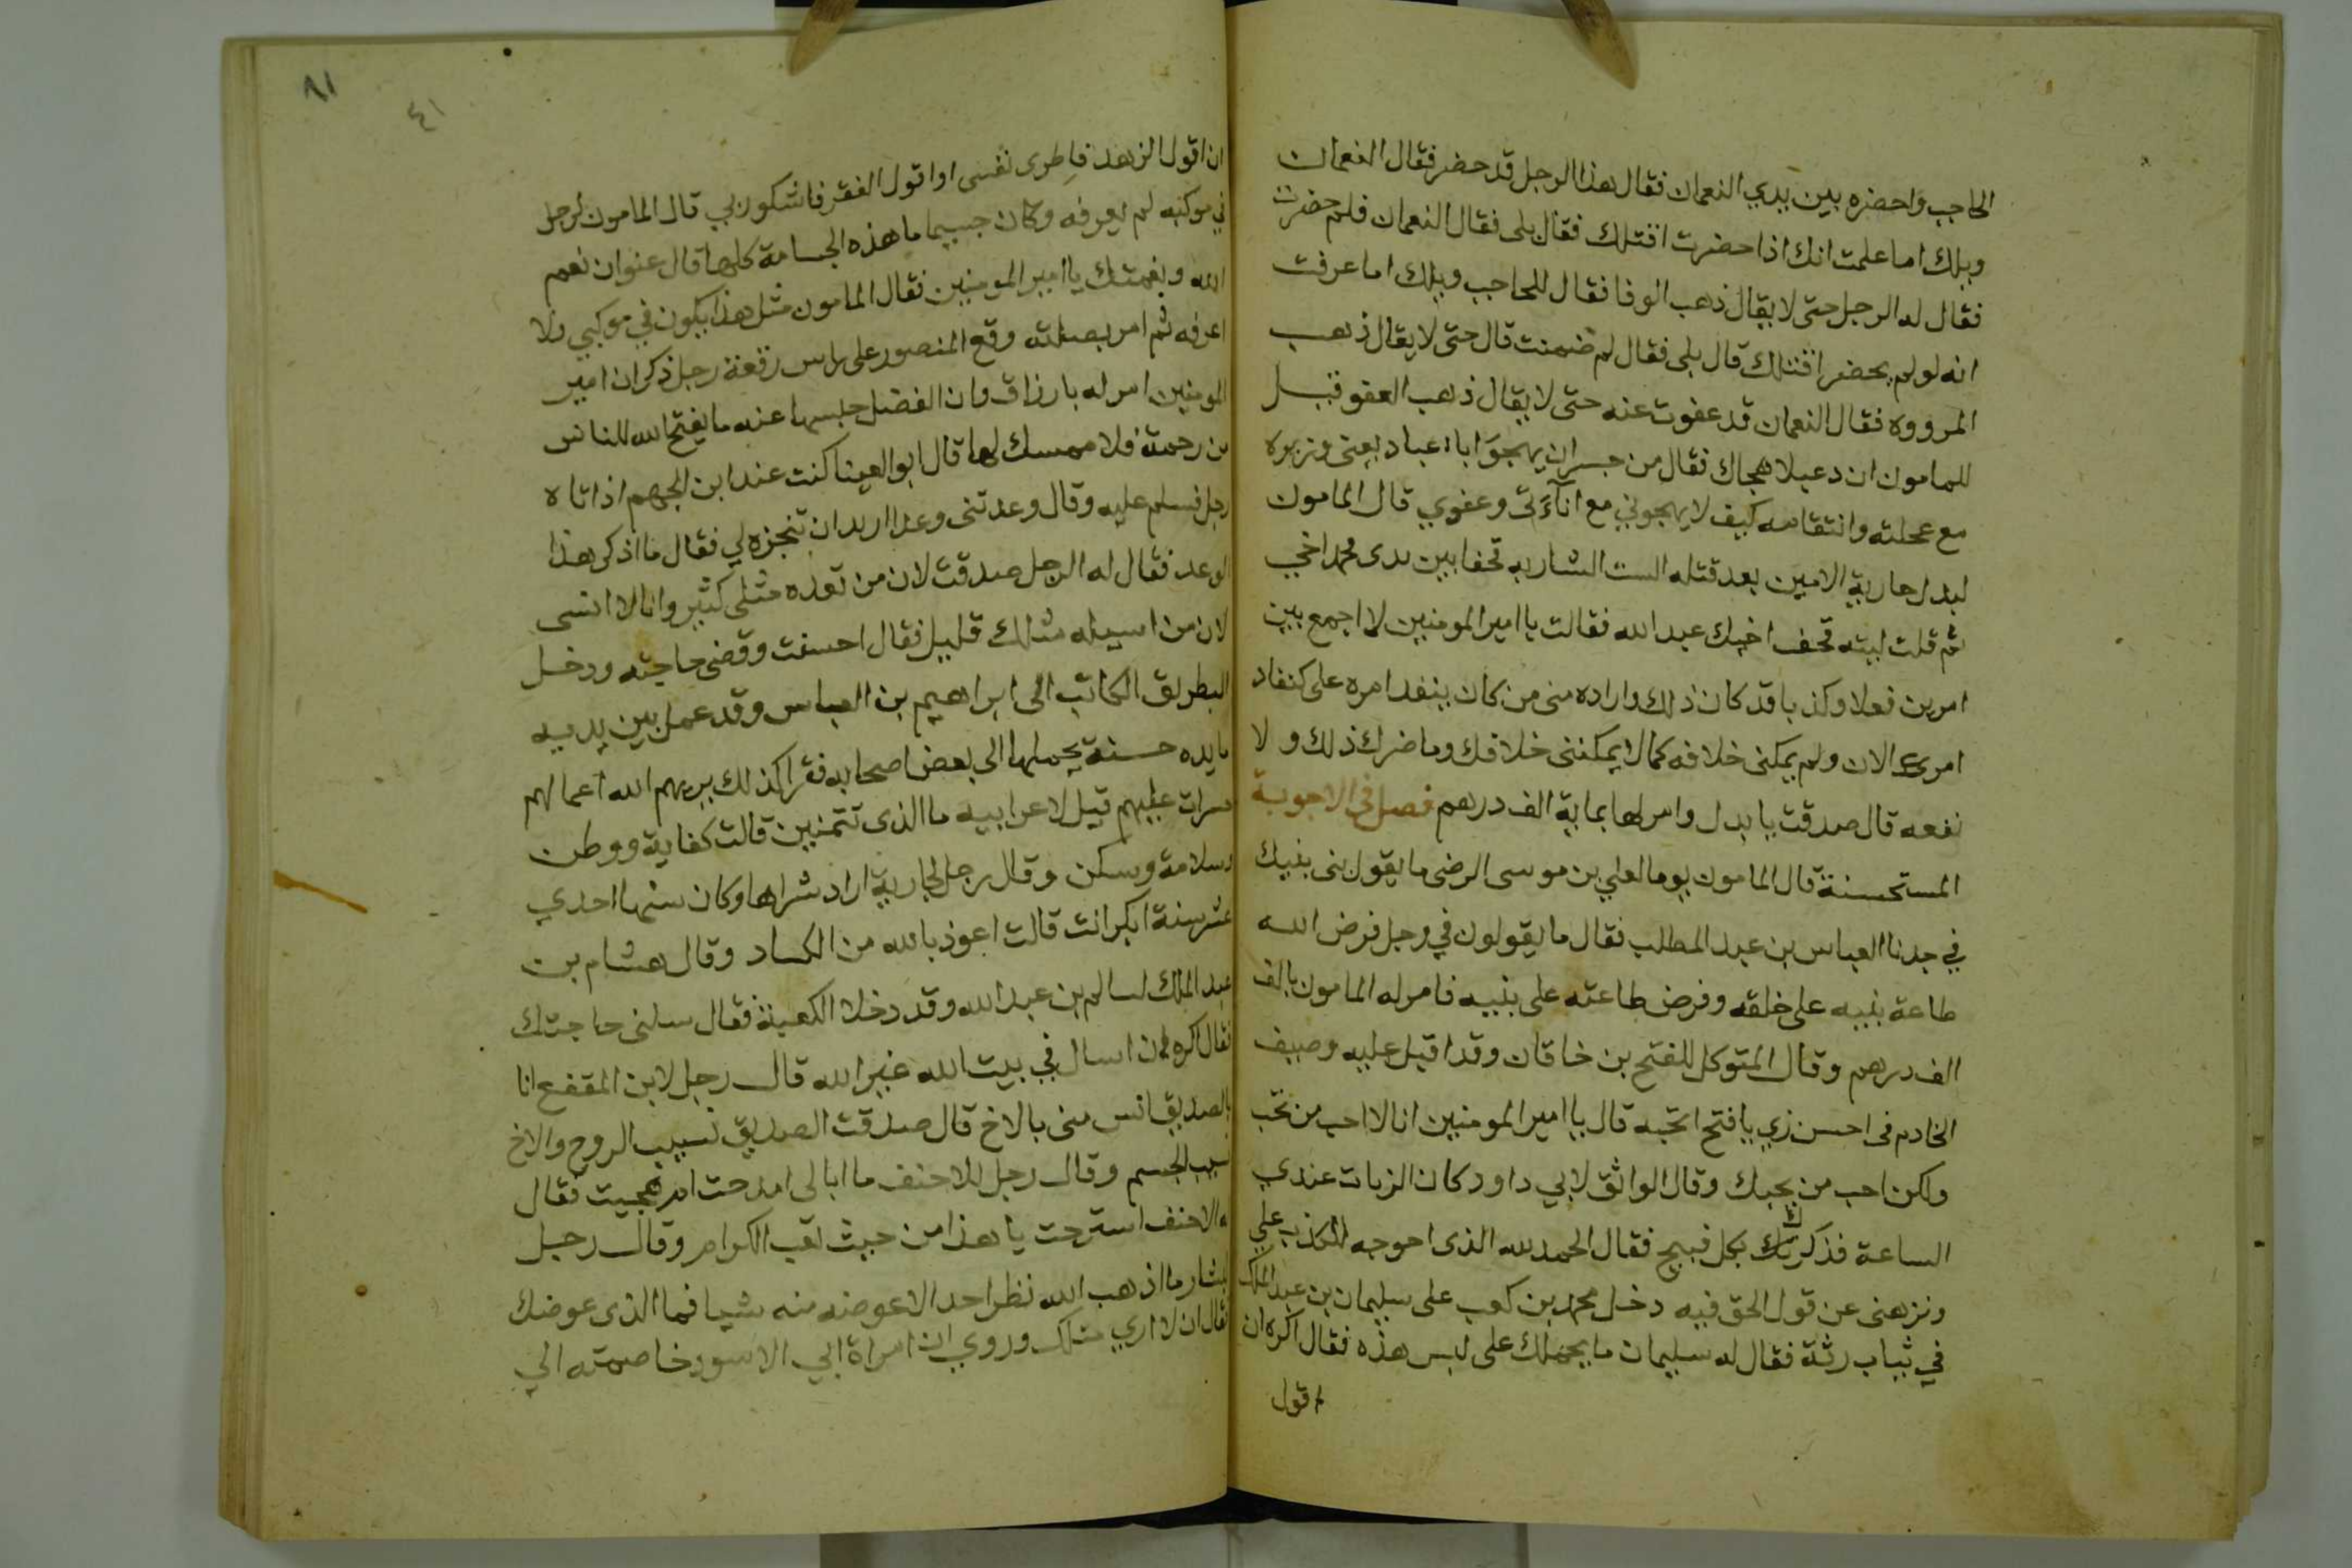 الحاجب واحضره بين يدي النعمان فقال هذا الرجل قد حضر فقال النعمان
ويلك اما علمت انك اذا حضرت اقتلك فقال بلى فقال النعمان فلم حضرت
فقال له الرجل حتى لا يقال ذهب الوفا فقال للحاجب ويلك اما عرفت
انه لو لم يحضر اقتلك قال بلى فقال لم ضمنت قال حتى لا يقال ذهب
المرووه فقال النعمان قد عفوت عنه حتى لا يقال ذهب العفو قيل
للمامون ان دعبلا هجاك فقال من جسر ان يهجو ابا عباد يعنى وزيره
مع عجلته وانتقامه كيف لا يهجوني مع اناءتى وعفوي قال المامون
لبدل جارية الامين بعد قتله الست الشاربه قحفا بين يدى محمد اخي
ثم قلت ليته قحف اخيك عبد الله فقالت يا امير المومنين لا اجمع بين
امرين فعلا وكذبا قد كان ذلك واراده منى من كان ينفد امره على كنفاد
امرك الان ولم يمكنى خلافه كما لا يمكننى خلافك وما ضرك ذلك ولا
نفعه قال صدقت يا بدل وامر لها بماية الف درهم فصل فى الاجوبة
المستحسنة قال المامون يوما لعلي بن موسى الرضى ما يقول بنى بنيك
في جدنا العباس بن عبد المطلب فقال ما يقولون في رجل فرض الله
طاعة بنيه على خلقه وفرض طاعته على بنيه فامر له المامون بالف
الف درهم وقال المتوكل للفتح بن خاقان وقد اقبل عليه وصيف
الخادم فى احسن زي يا فتح اتحبه قال يا امير المومنين انا لا احب من تحب
ولكن احب من يحبك وقال الواثق لابي داود كان الزيات عندي
الساعة فذكرك بكل قبيح فقال الحمد لله الذى احوجه للكذب علي
ونزهنى عن قول الحق فيه دخل محمد بن كعب على سليمان بن عبد الملك
في ثياب رثة فقال له سليمان ما يحملك على لبس هذه فقال اكره ان
اقول
٨١
٤١
ان اقول الزهد فاطرى نفسى او اقول الفقر فاشكو ربي قال المامون لرجل
في موكبه لم يعرفه وكان جسيما ما هذه الجسامة كلها قال عنوان نعم
الله ونعمتك يا امير المومنين فقال المامون مثل هذا يكون في موكبي ولا
اعرفه ثم امر بصلته وقع المنصور على راس رقعة رجل ذكر ان امير
المومنين امر له بارزاق وان الفضل حبسها عنه ما يفتح الله للناس
من رحمة فلا ممسك لها قال ابو العينا كنت عند ابن الجهم اذ اتاه
رجل فسلم عليه وقال وعدتنى وعدا اريد ان تنجزه لي فقال ما اذكر هذا
الوعد فقال له الرجل صدقت لان من تعده مثلى كثير وانا لا انسى
لان من اسيله مثلك قليل فقال احسنت وقضى حاجته ودخل
البطريق الكاتب الى ابراهيم بن العباس وقد عمل بين يديه
مايده حسنة يحملها الى بعض اصحابه فقرا كذلك يريهم الله اعمالهم
حسرات عليهم قيل لاعرابيه ما الذى تتمنين قالت كفاية ووطن
وسلامة وسكن وقال رجل لجارية اراد شراها وكان سنها احدي
عشر سنة ابكر انت قالت اعوذ بالله من الكساد وقال هشام بن
عبد الملك لسالم بن عبد الله وقد دخلا الكعبة فقال سلنى حاجتك
فقال اكره ان اسال في بيت الله غير الله قال رجل لابن المقفع انا
بالصديق انس منى بالاخ قال صدقت الصديق نسيب الروح والاخ
نسيب الجسم وقال رجل للاحنف ما ابالى امدحت ام هجيت فقال
له الاحنف استرحت يا هذا من حيث تعب الكرام وقال رجل
لبشار ما اذهب الله نظر احد الا عوضه منه شيا فما الذى عوضك
فقال ان لا اري مثلك وروي ان امراة ابي الاسود خاصمته الي